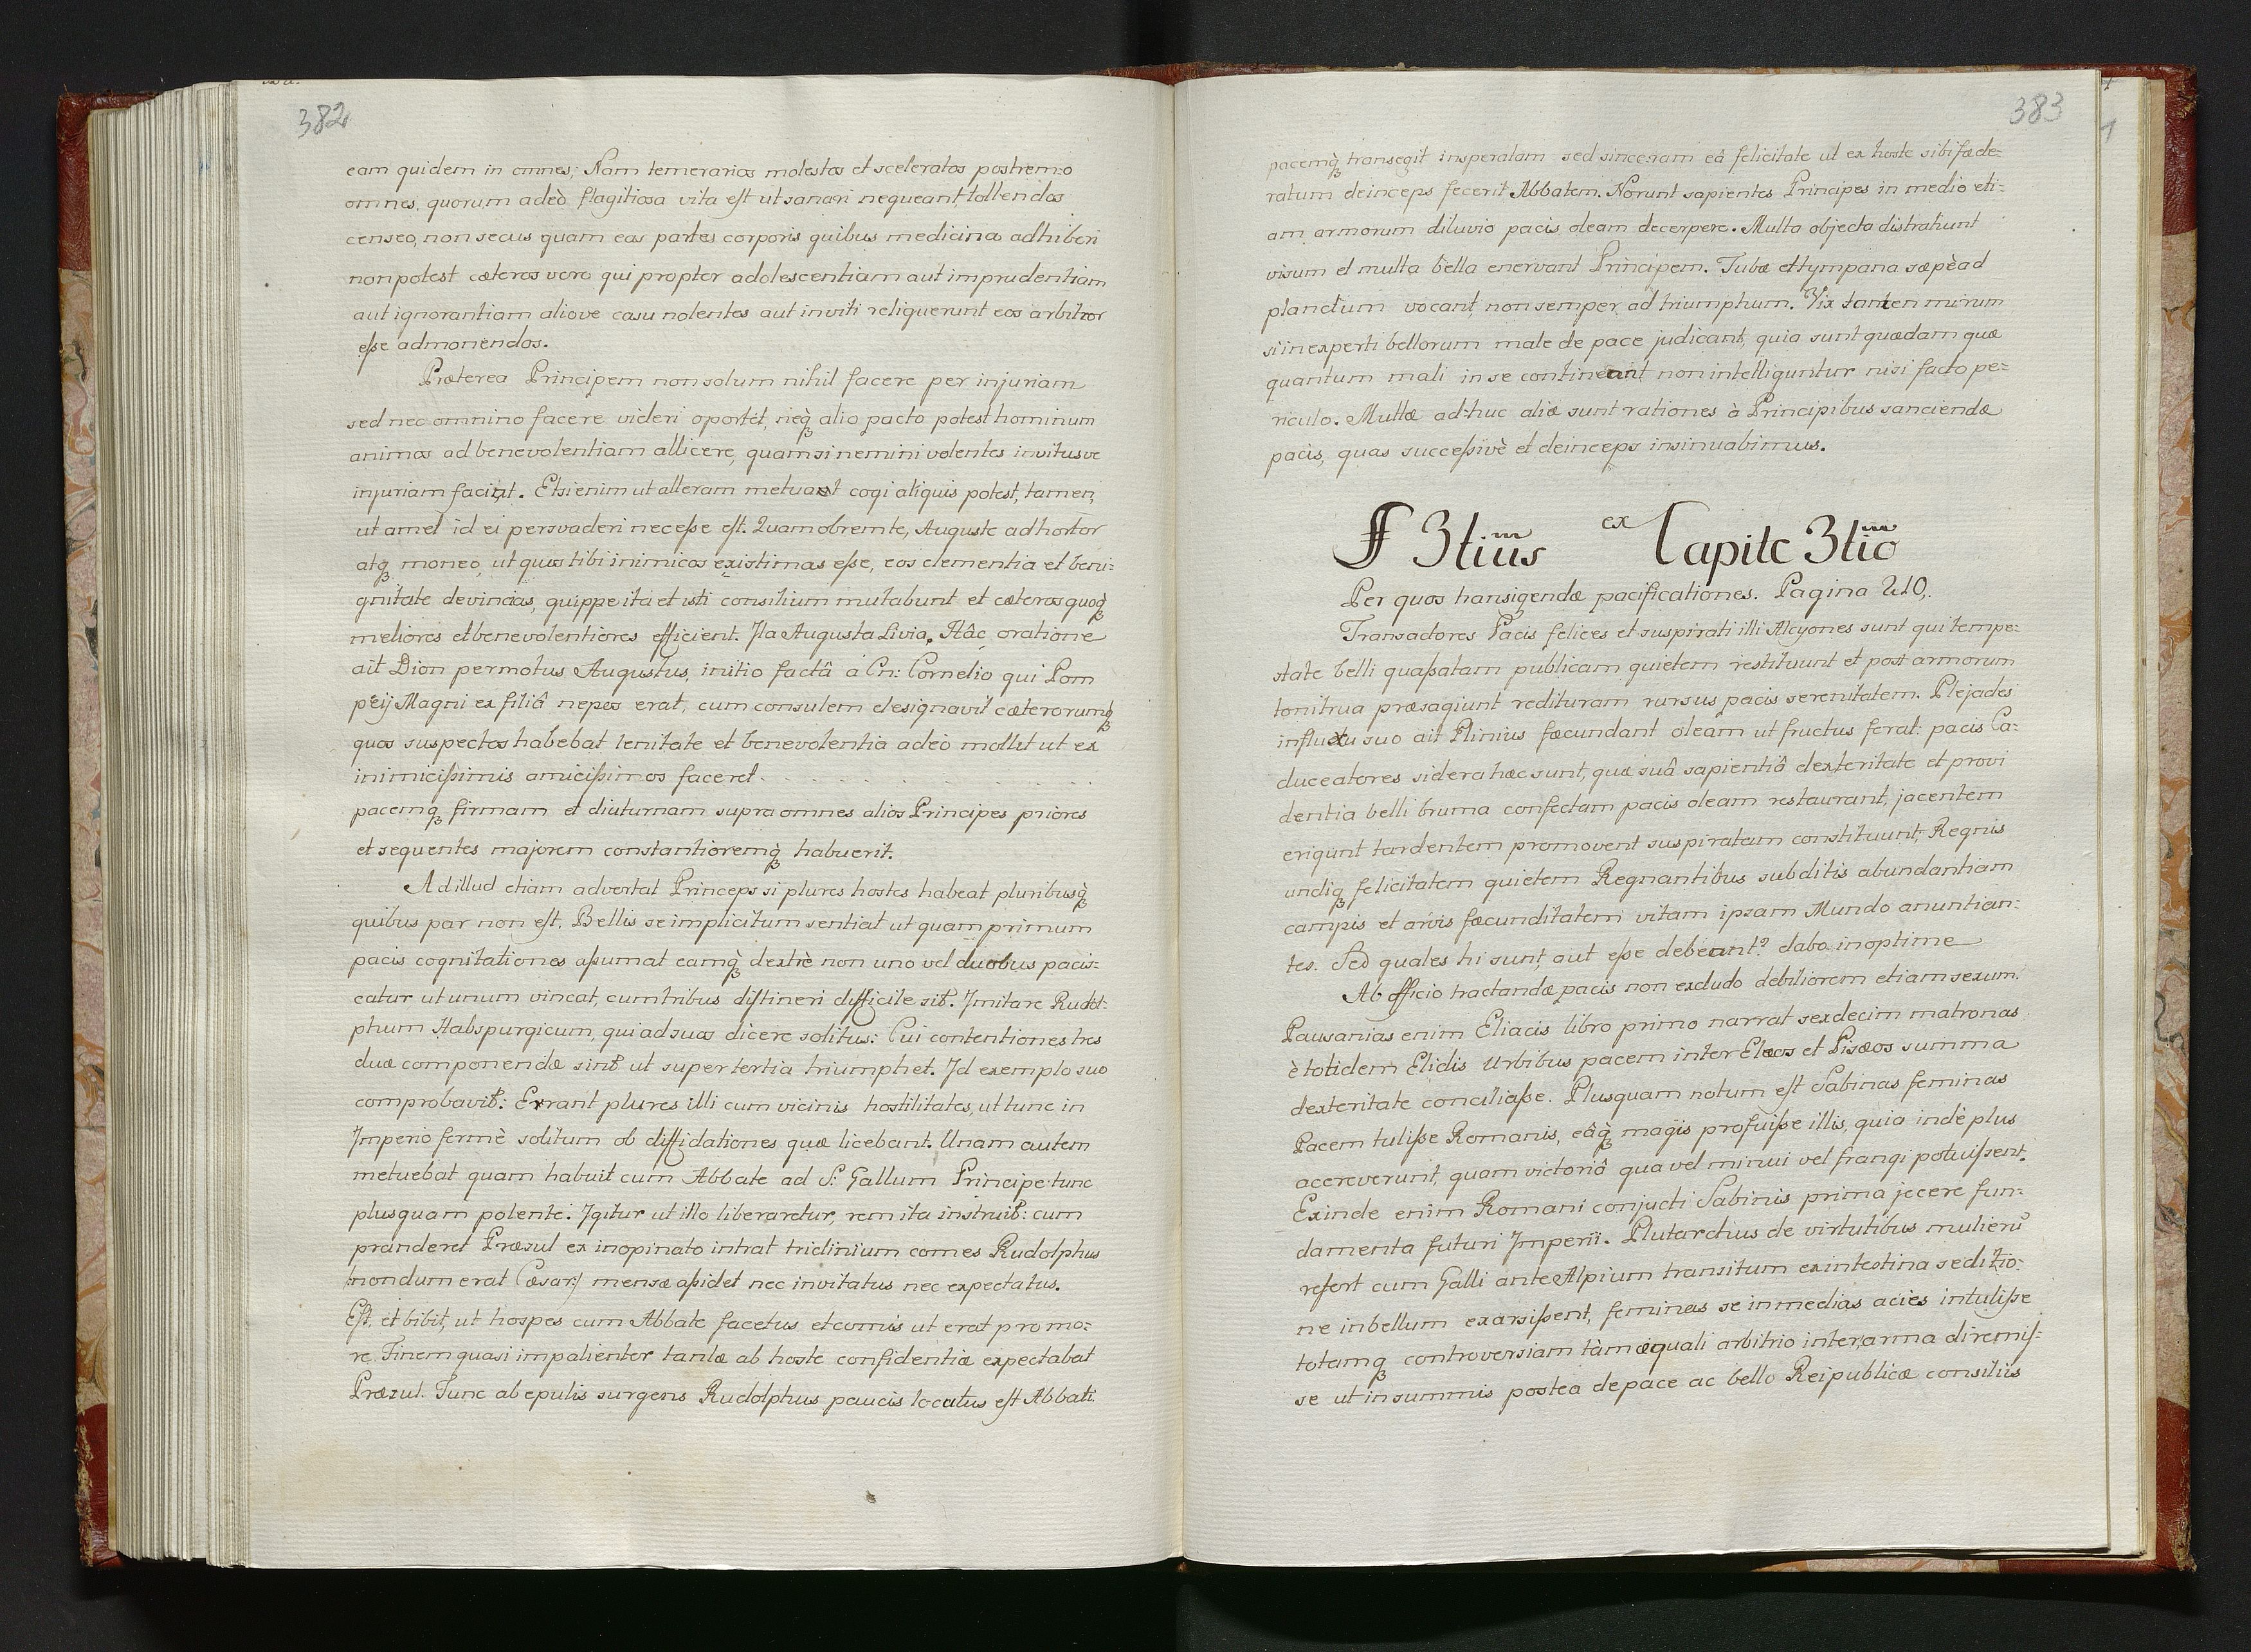 382
eam quidem in omnes; Nam temerarios molestos et sceleratos postremo
omnes, quorum adeò flagitiosa vita est ut sanari nequeant, tollendos
censeo, non secus quam eas partes corporis quibus medicina adhiberi
non potest cæteros vero qui propter adolescentiam aut imprudentiam
aut ignorantiam aliove casu nolentes aut inviti reliquerunt eos arbitror
eße admonendos.
Præterea Principem non solum nihil facere per injuriam
sed nec omnino facere videri oportet, neq̀ꝫ alio pacto potest hominum
animos ad benevolentiam allicere, quam si nemini volentes invitusve
injuriam faciat. Etsi enim ut alteram metuant cogi aliquis potest, tamen,
ut amet id ei persvaderi neceße est. Quamobrem te, Auguste adhortor
atqꝫ moneo, ut quos tibi inimicos existimas eße, eos clementia et beni:
gnitate devincias, quippe ita et isti consilium mutabunt et cæteros quoq̀ꝫ
meliores et benevolentiores efficient. Ita Augusta Livia. Hâc oratione
ait Dion permotus Augustus, initio factâ a Cn: Cornelio qui Pom
peij Magni ex filiâ nepos erat, cum consulem designavit cæterorumqꝫ
quos suspectos habebat lenitate et benevolentia adeo mollit ut ex
inimicißimis amicißimos faceret. . . . . . . . .
pacemqꝫ firmam et diuturnam supra omnes alios Principes priores
et sequentes majorem constantioremq̀ꝫ habuerit.
Ad illud etiam advertat Princeps si plures hostes habeat pluribusq̀ꝫ
quibus par non est. Bellis se implicitum sentiat ut quam primum
pacis cognitationes aßumat eamq̀ꝫ dextrè non uno vel duobus pacis:
catur ut unum vincat, cum tribus distineri difficile sit. Imitare Rudol:
phum Habspurgicum, qui ad suos dicere solitus: Cui contentiones tres
duæ componendæ sint ut super tertia triumphet. Id exemplo suo
comprobavit: Errant plures illi cum vicinis hostilitates, ut tunc in
Imperio fermè solitum ob diffidationes quæ licebant. Unam autem
metuebat quam habuit cum Abbate ad S: Gallum Principe tunc
plusquam potente. Igitur ut illo liberaretur, rem ita instruit: cum
pranderet Præsul ex inopinato intrat triclinium comes Rudolphus
/:nondum erat Cæsar:/ mensæ aßidet nec invitatus nec expectatus.
Est, et bibit, ut hospes cum Abbate facetus et comis ut erat pro mo:
re. Finem quasi impatienter tantæ ab hoste confidentiæ expectabat
Præsul. Tunc ab epulis surgens Rudolphus paucis locutus est Abbati
383
pacemq̀ꝫ transegit insperatam sed sinceram eâ felicitate ut ex hoste sibi fæde:
ratum deinceps fecerit Abbatem. Norunt sapientes Principes in medio eti:
am armorum diluvio pacis oleam decerpere. Multa objecta distrahunt
visum et multa bella enervant Principem. Tubæ et tympana sæpè ad
planctum vocant, non semper ad triumphum. Vix tamen mirum
si inexperti bellorum male de pace judicant, quia sunt quædam quæ
quantum mali in se contineant non intelliguntur nisi facto pe:
riculo. Multæ ad-huc aliæ sunt rationes à Principibus sanciendæ
pacis, quas succeßivè et deinceps insinuabimus.
§ 3tiusm ex Capite 3tiom
Per quos transigendæ pacificationes. Pagina 210.
Transactores Pacis felices et suspirati illi Alcyones sunt qui tempe:
state belli quaßatam publicam quietem restituunt et post armorum
tonitrua præsagiunt redituram rursus pacis serenitatem. Plejades
influxu suo ait Plinius fæcundant oleam ut fructus ferat: pacis Ca:
duceatores sidera hæc sunt, quæ suâ sapientiâ dexteritate et provi
dentia belli bruma confectam pacis oleam restaurant, jacentem
erigunt tardentem promovent suspiratam constituunt, Regnis
undiqꝫ felicitatem quietem Regnantibus subditis abundantiam
campis et arvis fæcunditatem vitam ipsam Mundo anuntian:
tes. Sed quales hi sunt, aut eße debeant? dabo in optime
Ab officio tractandæ pacis non excludo debiliorem etiam sexum.
Pausanias enim Eliacis libro primo narrat sexdecim matronas
è totidem Elidis Urbibus pacem inter Eleos et Pisæos summa
dexteritate conciliaße. Plusquam notum est Sabinas feminas
Pacem tuliße Romanis, eâq̀ꝫ magis profuiße illis, quia indè plus
acereverunt, quam victoriâ qua vel minui vel frangi potuißent.
Exinde enim Romani conjucti Sabinis prima jecere fun:
damenta futuri Imperii. Plutarchus de virtutibus mulierū
refert cum Galli ante Alpium transitum ex intestina seditio:
ne in bellum exarsißent, feminas se in medias acies intuliße
totamqꝫ controversiam tàm æquali arbitrio inter arma diremis:
se ut in summis postea de pace ac bello Reipublicæ consiliis